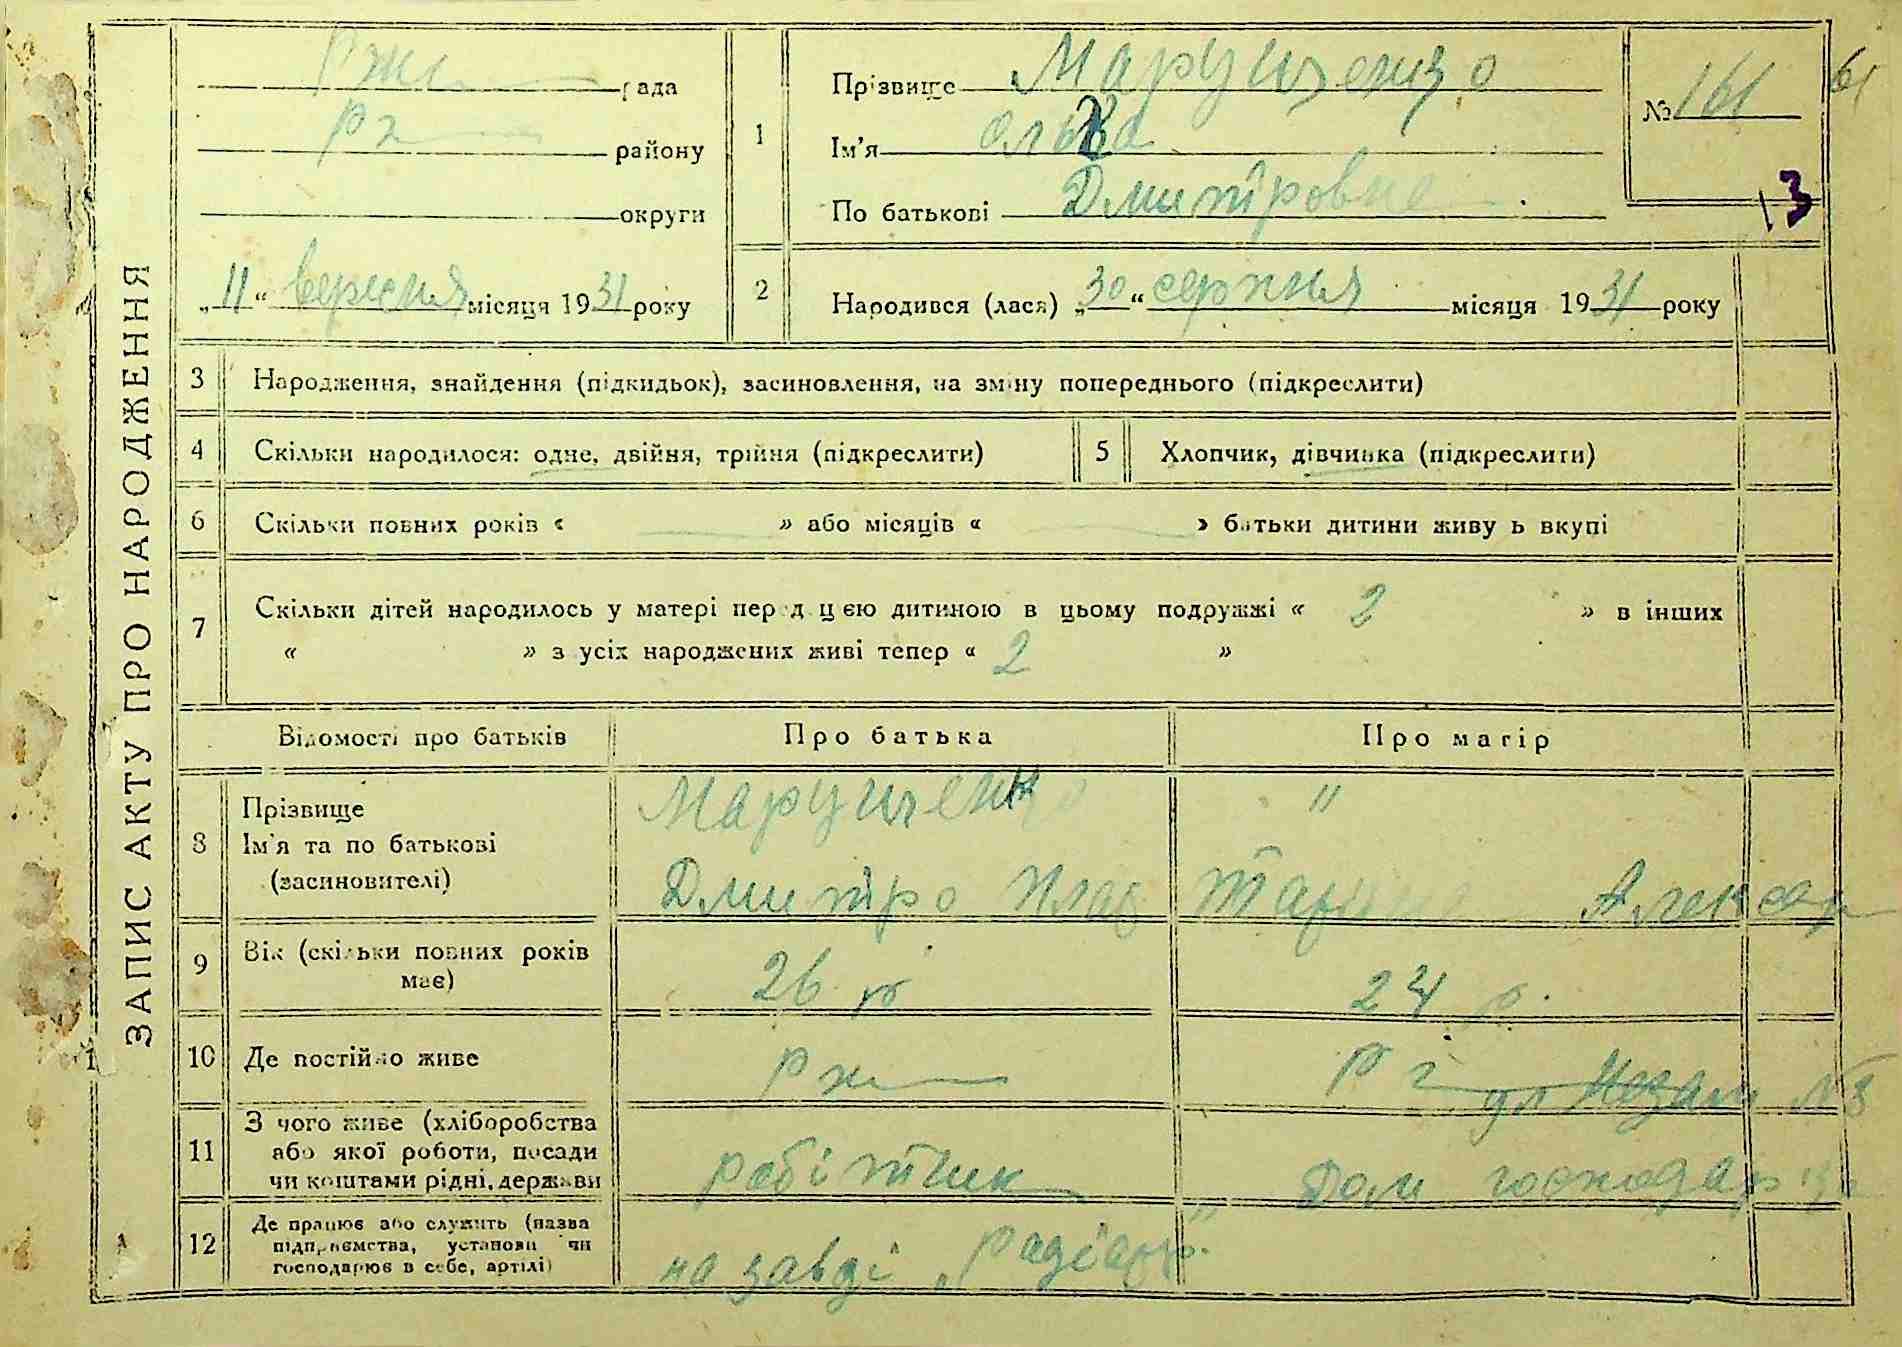 ЗАПИС АКТУ ПРО НАРОДЖЕННЯ
Рж рада
Рж району
округи
„11“ вересня місяця 1931 року
1
Прізвище Марущенко
Ім'я Ольга
По батькові Дмитровна
№ 161
61
13
2
Народився (лася) „30“ серпня місяця 1931 року
3 Народження, знайдення (підкидьок), засиновлення, на зміну попереднього (підкреслити)
4 Скільки народилося: одне, двійня, трійня (підкреслити)
5 Хлопчик, дівчинка (підкреслити)
6 Скільки повних років « » або місяців « » батьки дитини живуть вкупі
7 Скільки дітей народилось у матері перед цією дитиною в цьому подружжі « 2 » в інших
« » з усіх народжених живі тепер « 2 »
Відомості про батьків Про батька Про матір
8 Прізвище
Ім'я та по батькові
(засиновителі)
Марущенко
Дмитро
"
Алексар
9 Вік (скільки повних років
має)
26 р
24 р.
10 Де постійно живе
Рж
ул Незам №8
11 З чого живе (хліборобства
або якої роботи, посади
чи коштами рідні, держави
робітник
Дом господар
12 Де працює або служить (назва
підприємства, установи чи
господарює в себе, артілі)
на завді